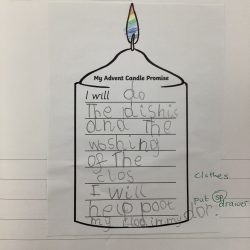 My Advent Candle Promise
I will do
The dishis
and The
woshing
of The
clos
clothes
I will
help poot
put sp
my clos in my dor.
drawer